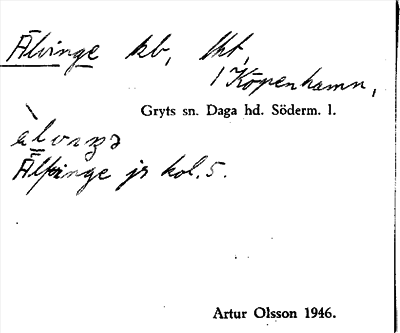 Älvinge kb, lht,
1 Köpenhamn,
Gryts sn. Daga hd. Söderm. l.
Älvinge jr kol. 5.
Artur Olsson 1946.